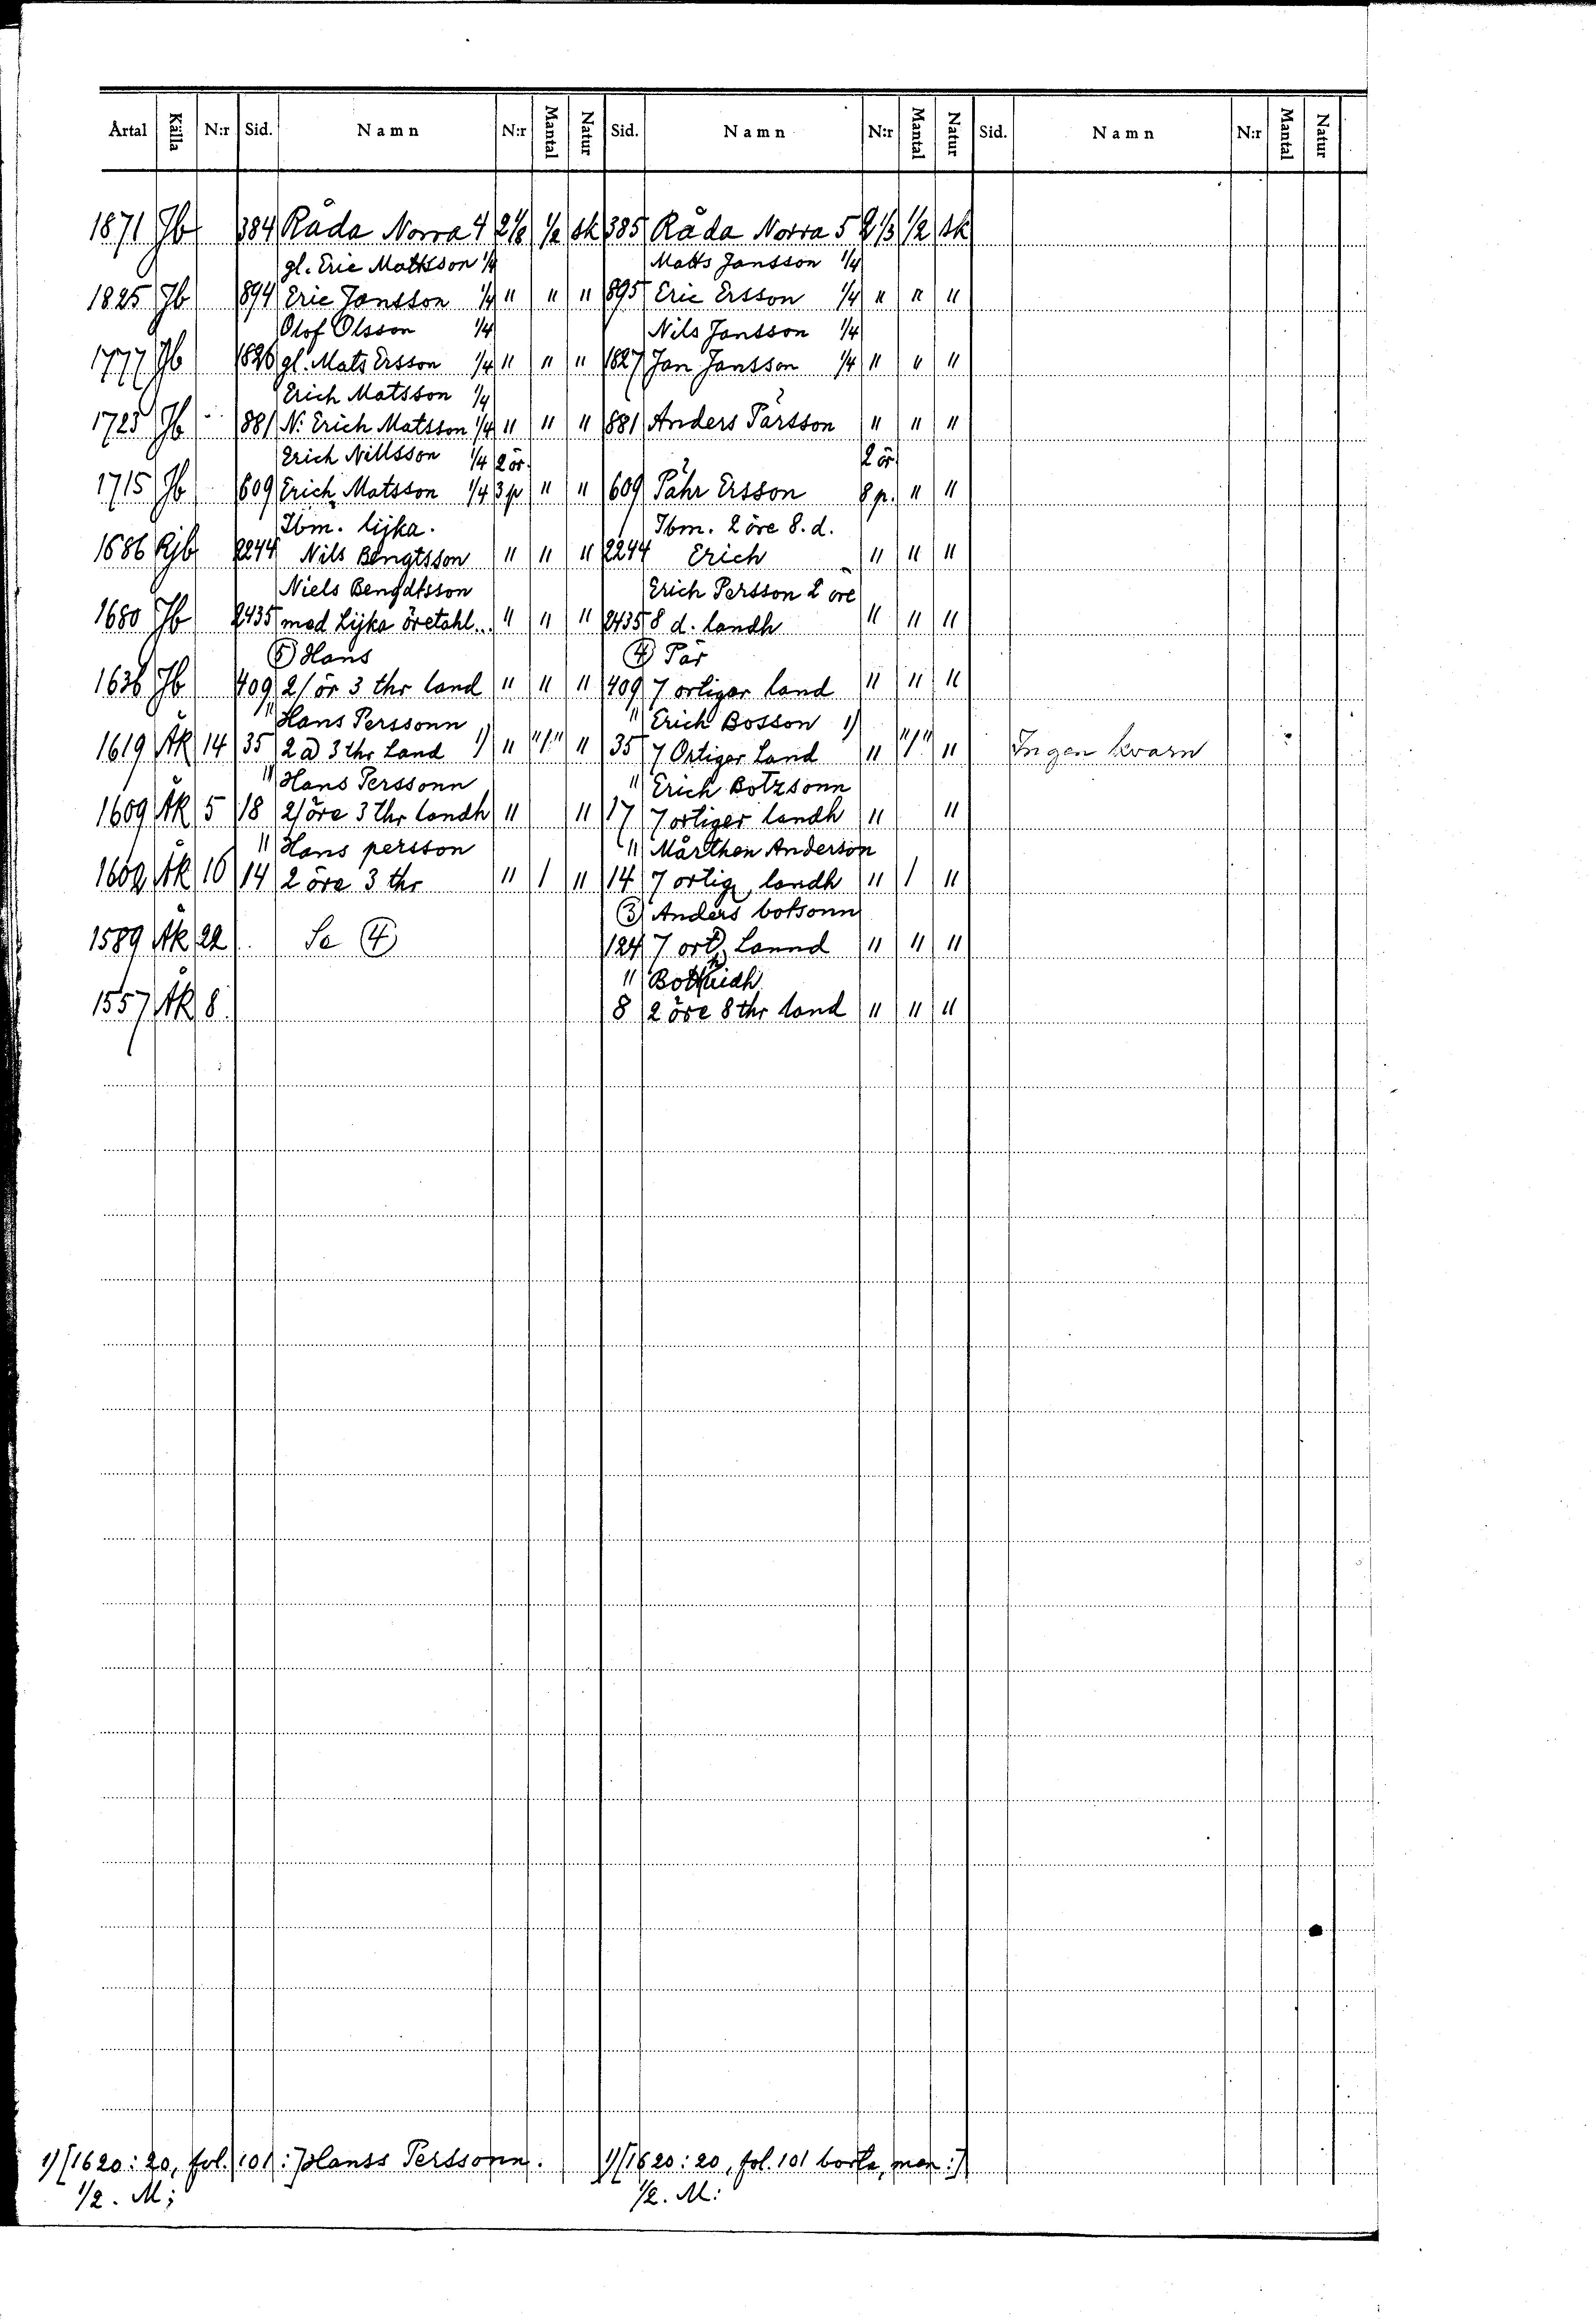 Årtal Källa N:r Sid. Namn N:r Mantal Natur Sid. Namn N:r Mantal Natur Sid. Namn N:r Mantal Natur
1871 Jb 384 Råda Norra 4 2 1/8 1/2 sk 385 Råda Norra 5 2 1/3 1/2 sk
gl. Eric Mattsson 1/4 Matts Jansson 1/4
1825 Jb 894 Eric Jansson 1/4 " " " 895 Eric Ersson 1/4 " " "
Olof Olsson 1/4 Nils Jansson 1/4
1777 Jb 1826 gl. Mats Ersson 1/4 " " " 1827 Jan Jansson 1/4 " " "
Erich Matsson 1/4
1723 Jb 881 N: Erich Matsson 1/4 " " " 881 Anders Pärsson " " "
Erich Nillsson 1/4 2 ör. 2 ör
1715 Jb 609 Erich Matsson 1/4 3 p " " 609 Pähr Ersson 8 p. " "
Ibm. lijka. Ibm. 2 öre 8. d.
1686 Rjb 2244 Nils Bengtsson " " " 2244 Erich " " "
Niels Bengdtsson Erich Persson 2 öre
1680 Jb 2435 med Lijka öretahl.. " " " 2435 8 d. landh " " "
(5) Hans (4) Pär
1636 Jb 409 2/ ör 3 thr land " " " 409 7 ortigar land " " "
" Hans Perssonn " Erich Bosson 1)
1619 ÄK 14 35 2 a) 3 thr Land 1) " "1" " 35 7 Ortiger Land " "1" " Ingen kvarn
" Hans Perssonn " Erich Botzsonn
1609 ÄK 5 18 2/ öre 3 Thr landh " " 17 7 ortiger landh " "
" Hans persson " Mårthen Anderson
1602 ÄK 16 14 2 öre 3 thr " 1 " 14 7 ortig landh " 1 "
(3) Anders botsonn
1589 ÄK 22 Se (4) 124 7 ort Lannd " " "
" Bothuidh
1557 ÄK 8 8 2 öre 8 thr land " " "
1) [1620: 20, fol. 101:] Hanss Perssonn. 1) [1620: 20, fol. 101 borta, men:]
1/2. M; 1/2. M: